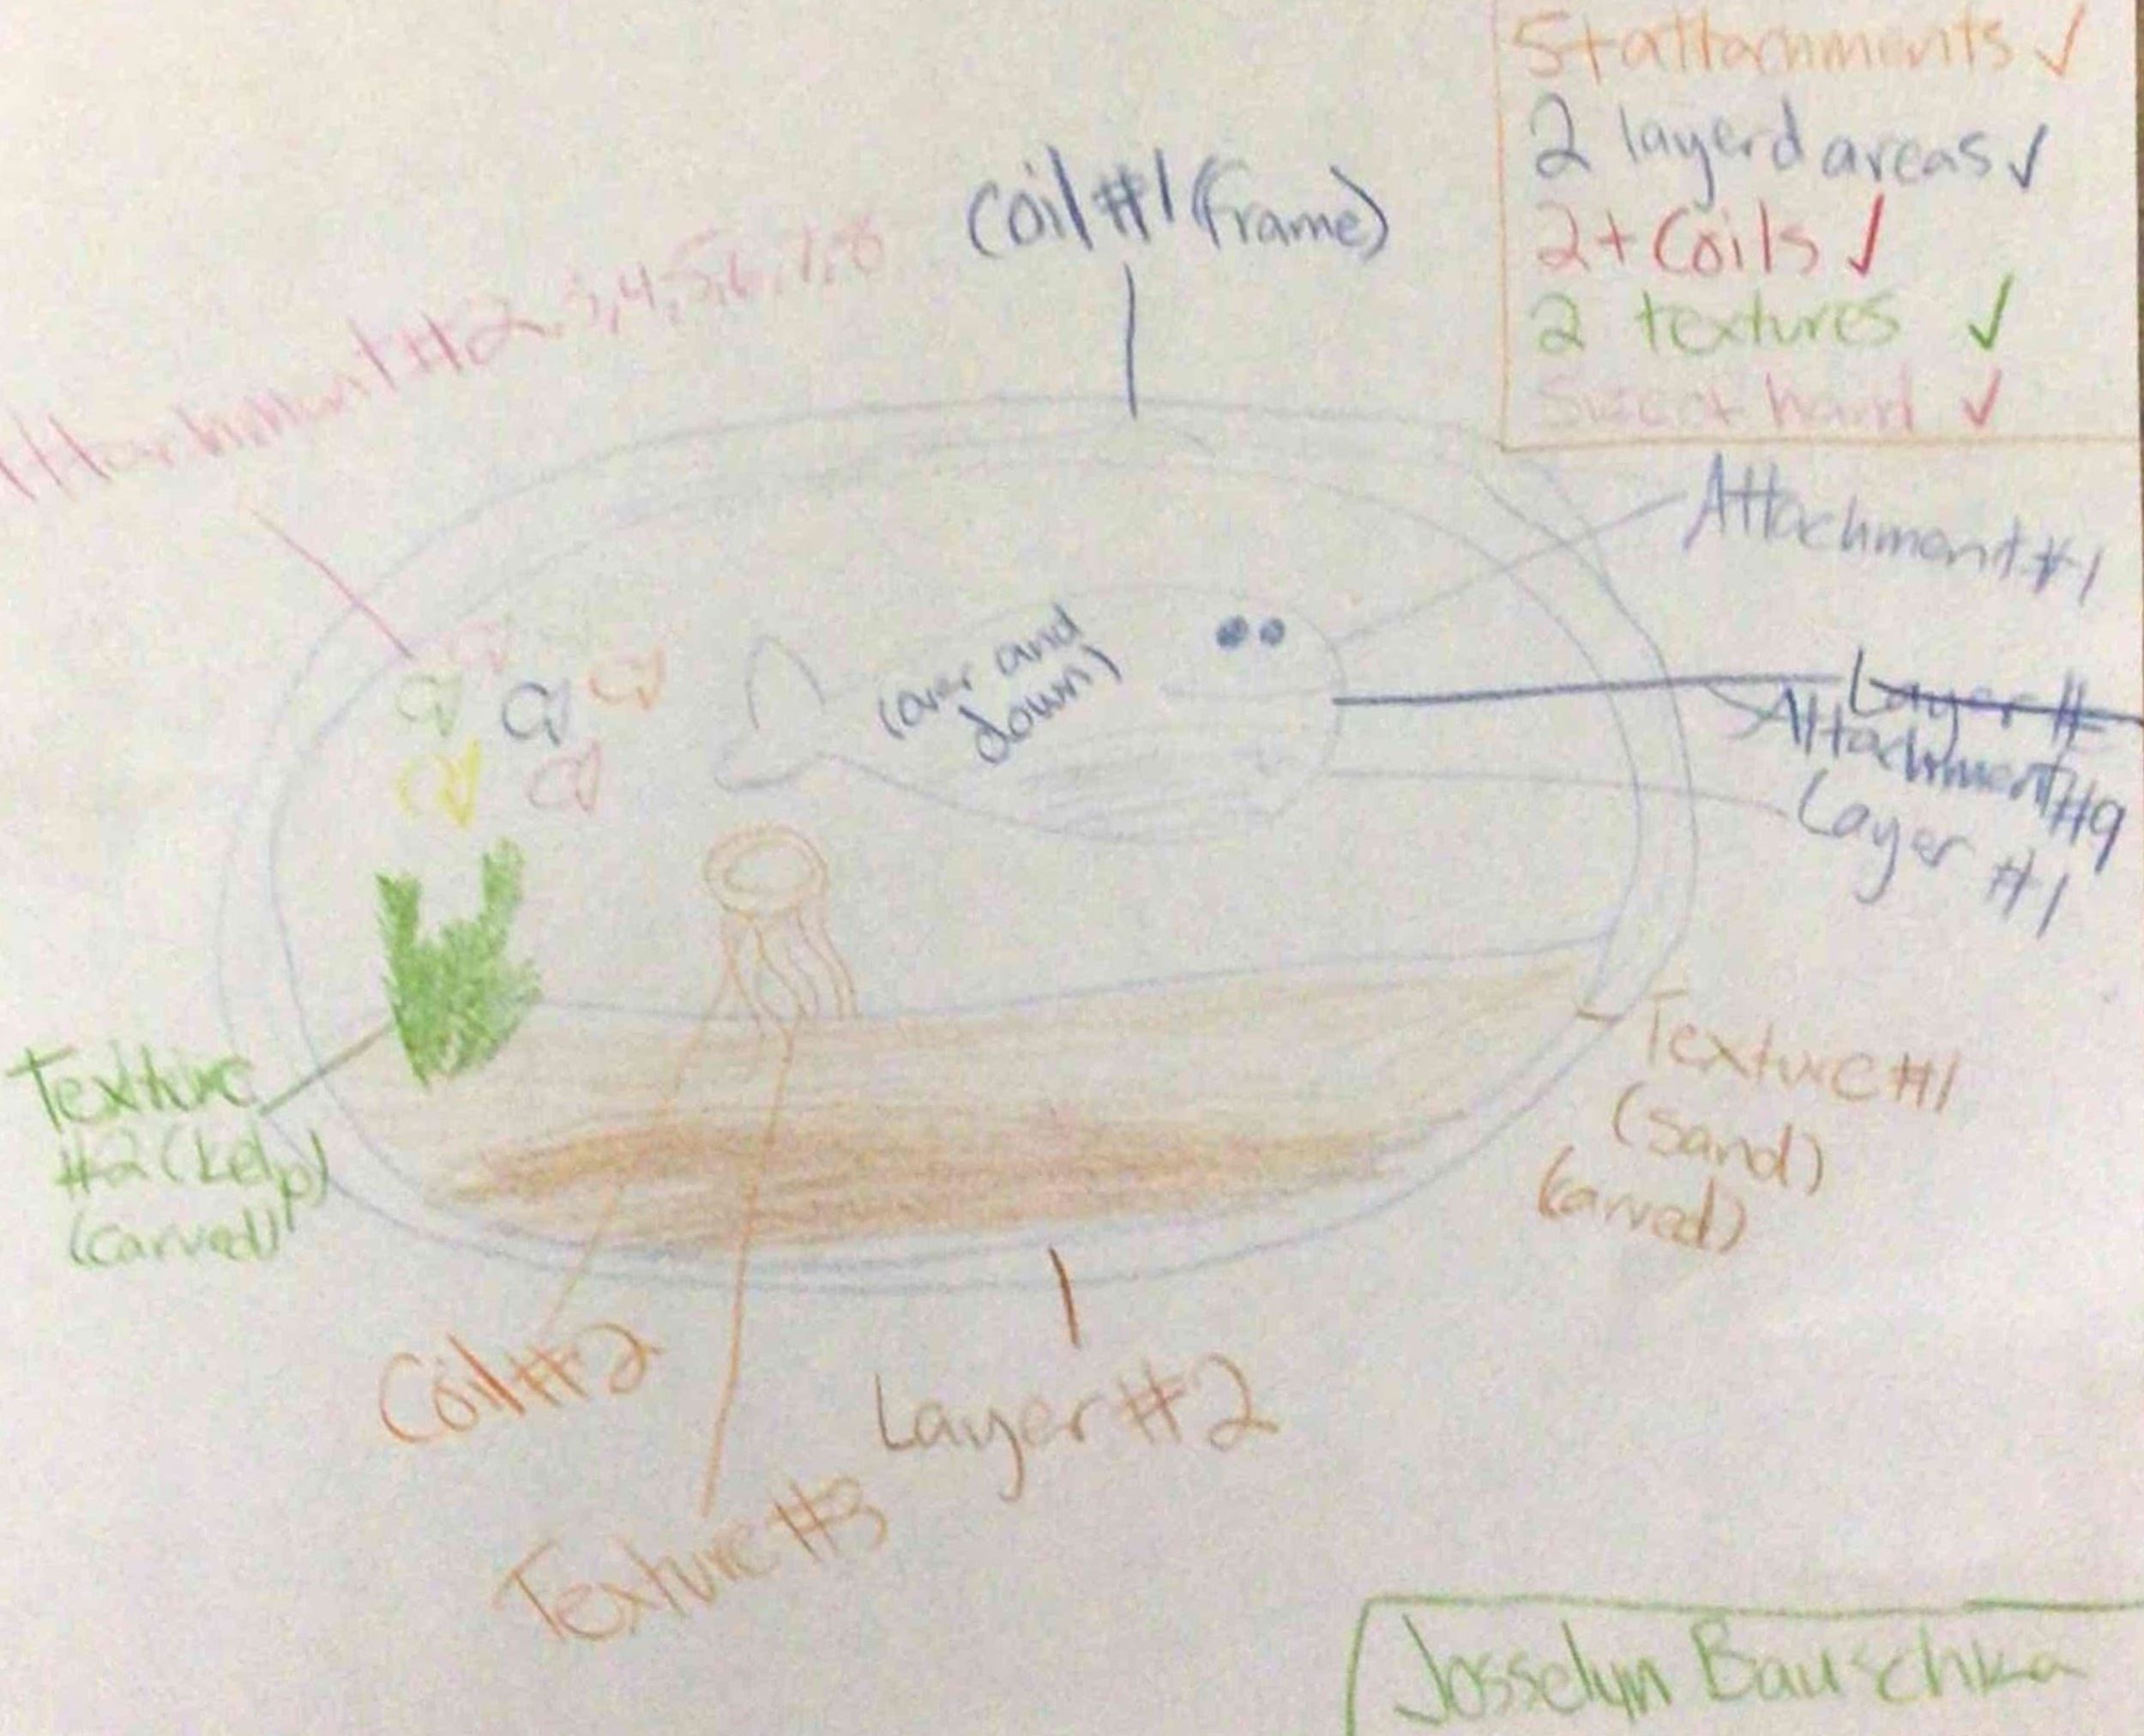 5+ attachments ✓
2 layerd areas ✓
2+ Coils ✓
2 textures ✓
hand ✓
Coil #1 (frame)
Attachment #2,3,4,5,6,7,8
Attachment #1
(over and
down)
Layer #
Attachment #9
Layer #1
Texture #1
(sand)
(carved)
Texture
#2 (kelp)
(carved)
Coil #2
Layer #2
Texture #3
Josselyn Bauschka